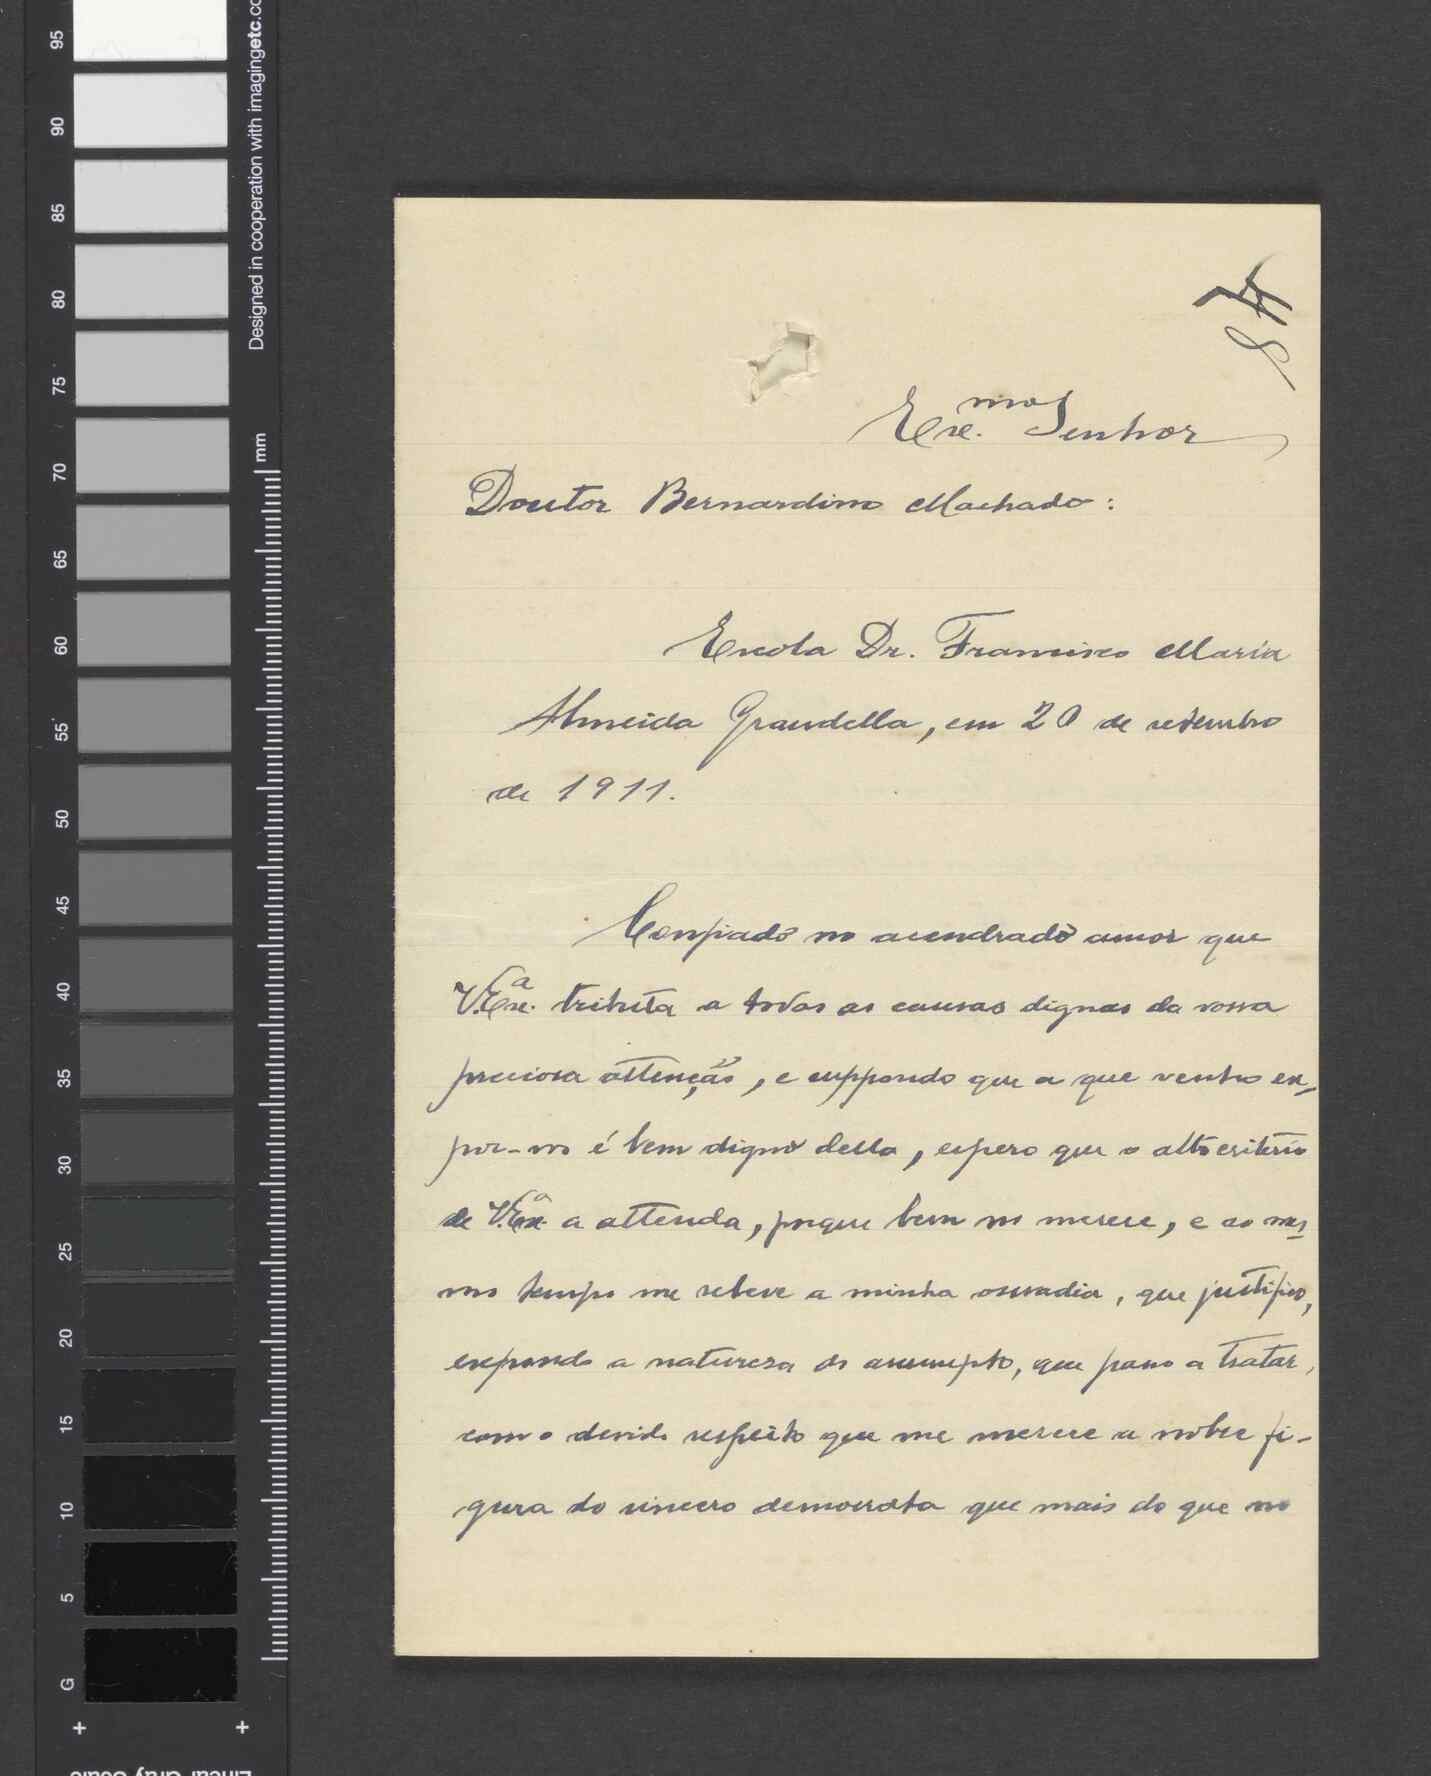 95
90
85
80
75
70
65
60
55
50
45
40
35
30
25
20
15
10
5
G
Designed in cooperation with imagingetc.co
mm
Exc.mo Senhor
Doutor Bernardino Machado:
Escola Dr. Francisco Maria
Almeida Grandella, em 20 de setembro
de 1911.
Confiado no acendrado amor que
V.Exc.a tributa a todas as causas dignas da vossa
preciosa attenção, e suppondo que a que venho ex-
por-vos é bem digna della, espero que o alto criterio
de V.Ex.a a attenda, porque bem no merece, e ao mes-
mo tempo me releve a minha ousadia, que justifico,
expondo a natureza do assumpto, que passo a tratar,
com o devido respeito que me merece a nobre fi-
gura do sincero democrata que mais do que no